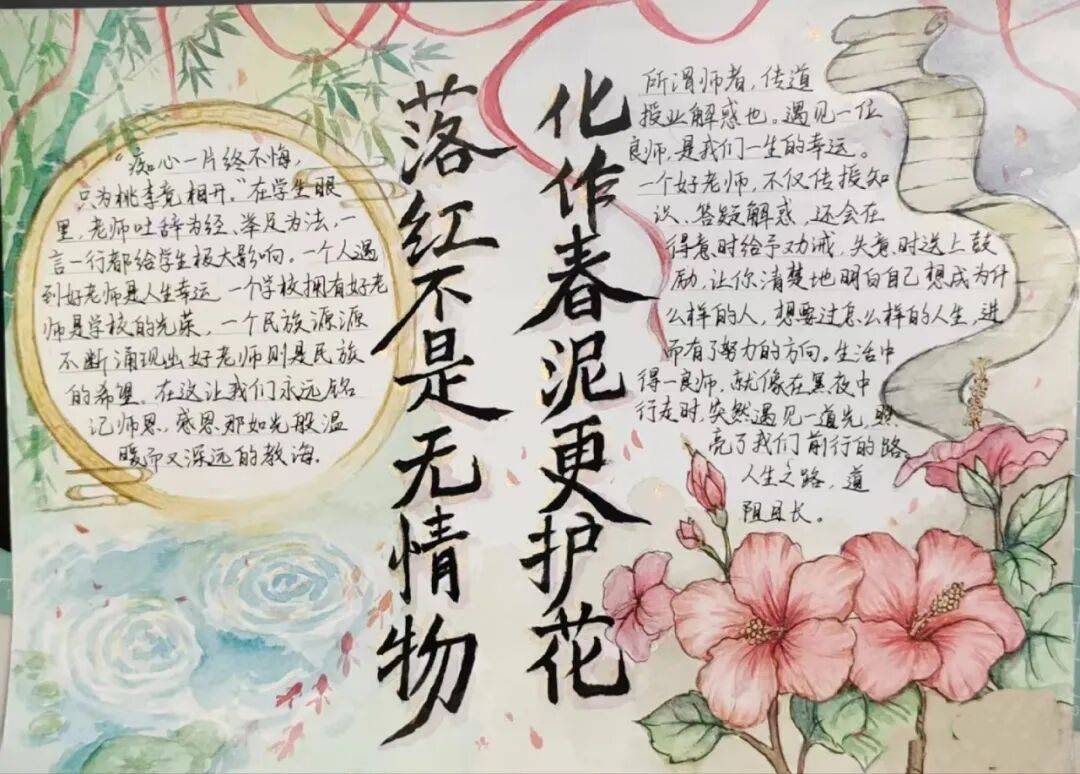 落红不是无情物
化作春泥更护花
“痴心一片终不悔，
只为桃李竟相开。”在学生眼
里，老师吐辞为经、举足为法，一
言一行都给学生极大影响。一个人遇
到好老师是人生幸运 一个学校拥有好老
师是学校的光荣，一个民族源源
不断涌现出好老师则是民族
的希望。在这让我们永远铭
记师恩，感恩那如光般温
暖而又深远的教诲.
所谓师者，传道
授业解惑也。遇见一位
良师，是我们一生的幸运。
一个好老师，不仅传授知
识、答疑解惑，还会在
得意时给予劝诫，失意时送上鼓
励，让你清楚地明白自己想成为什
么样的人，想要过怎么样的人生，进
而有了努力的方向。生活中
得一良师，就像在黑夜中
行走时，突然遇见一道光，照
亮了我们前行的路
人生之路，道
阻且长。